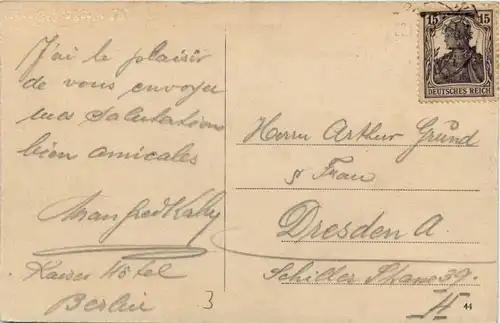 J'ai le plaisir
de vous envoyer
mes salutations
bien amicales
Manfred
Kaiser Hôtel
Berlin
3
15 15
DEUTSCHES REICH
Herrn Arthur Grund
u Frau
Dresden A
Schiller Strasse 39.
44